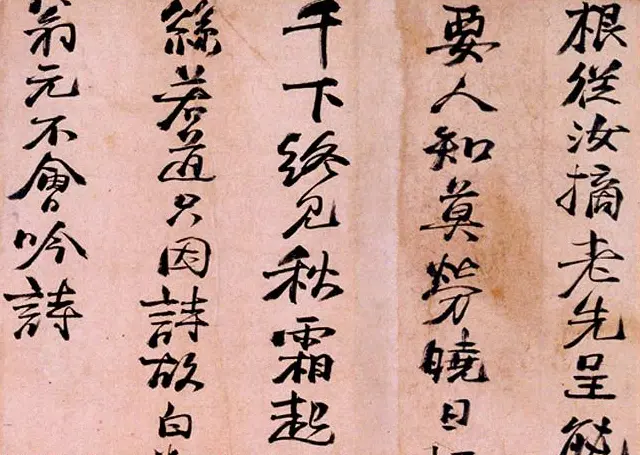 根從汝摘老先呈
要人知莫勞曉日
千下終見秋霜起
絲若道只因詩故白
翁元不會吟詩